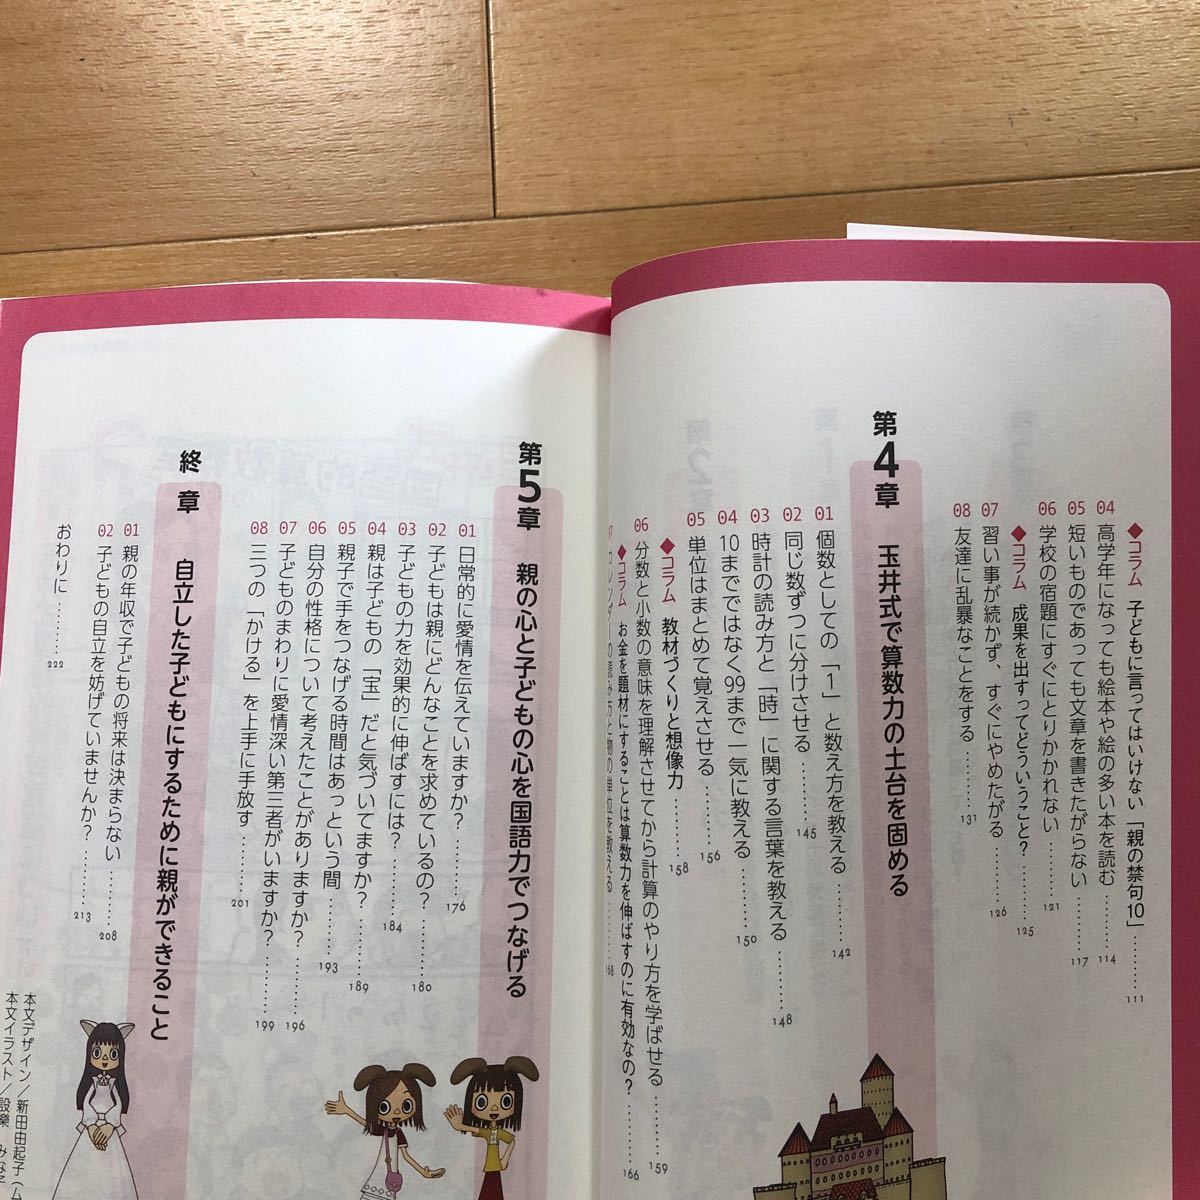 ◆コラム 子どもに言ってはいけない「親の禁句10」………111
04 高学年になっても絵本や絵の多い本を読む………114
05 短いものであっても文章を書きたがらない………117
06 学校の宿題にすぐにとりかかれない………121
◆コラム 成果を出すってどういうこと?………125
07 習い事が続かず、すぐにやめたがる………126
08 友達に乱暴なことをする………131
第4章 玉井式で算数力の土台を固める
01 個数としての「1」と数え方を教える………142
02 同じ数ずつに分けさせる………145
03 時計の読み方と「時」に関する言葉を教える………148
04 10まででではなく99まで一気に教える………150
05 単位はまとめて覚えさせる………156
◆コラム 教材づくりと想像力………158
06 分数と小数の意味を理解させてから計算のやり方を学ばせる………159
◆コラム お金を題材にすることは算数力を伸ばすのに有効なの?………166
07 カレンダーの読み方と暦の単位を教える………168
第5章 親の心と子どもの心を国語力でつなげる
01 日常的に愛情を伝えていますか?………176
02 子どもは親にどんなことを求めているの?………180
03 子どもの力を効果的に伸ばすには?………
04 親は子どもの「宝」だと気づいてますか?………184
05 親子で手をつなげる時間はあっという間………189
06 自分の性格について考えたことがありますか?………193
07 子どものまわりに愛情深い第三者がいますか?………196
08 三つの「かける」を上手に手放す………199
201
終章 自立した子どもにするために親ができること
01 親の年収で子どもの将来は決まらない………208
02 子どもの自立を妨げていませんか?………213
おわりに………222
本文デザイン/新田由起子(ム
本文イラスト/設樂みな子